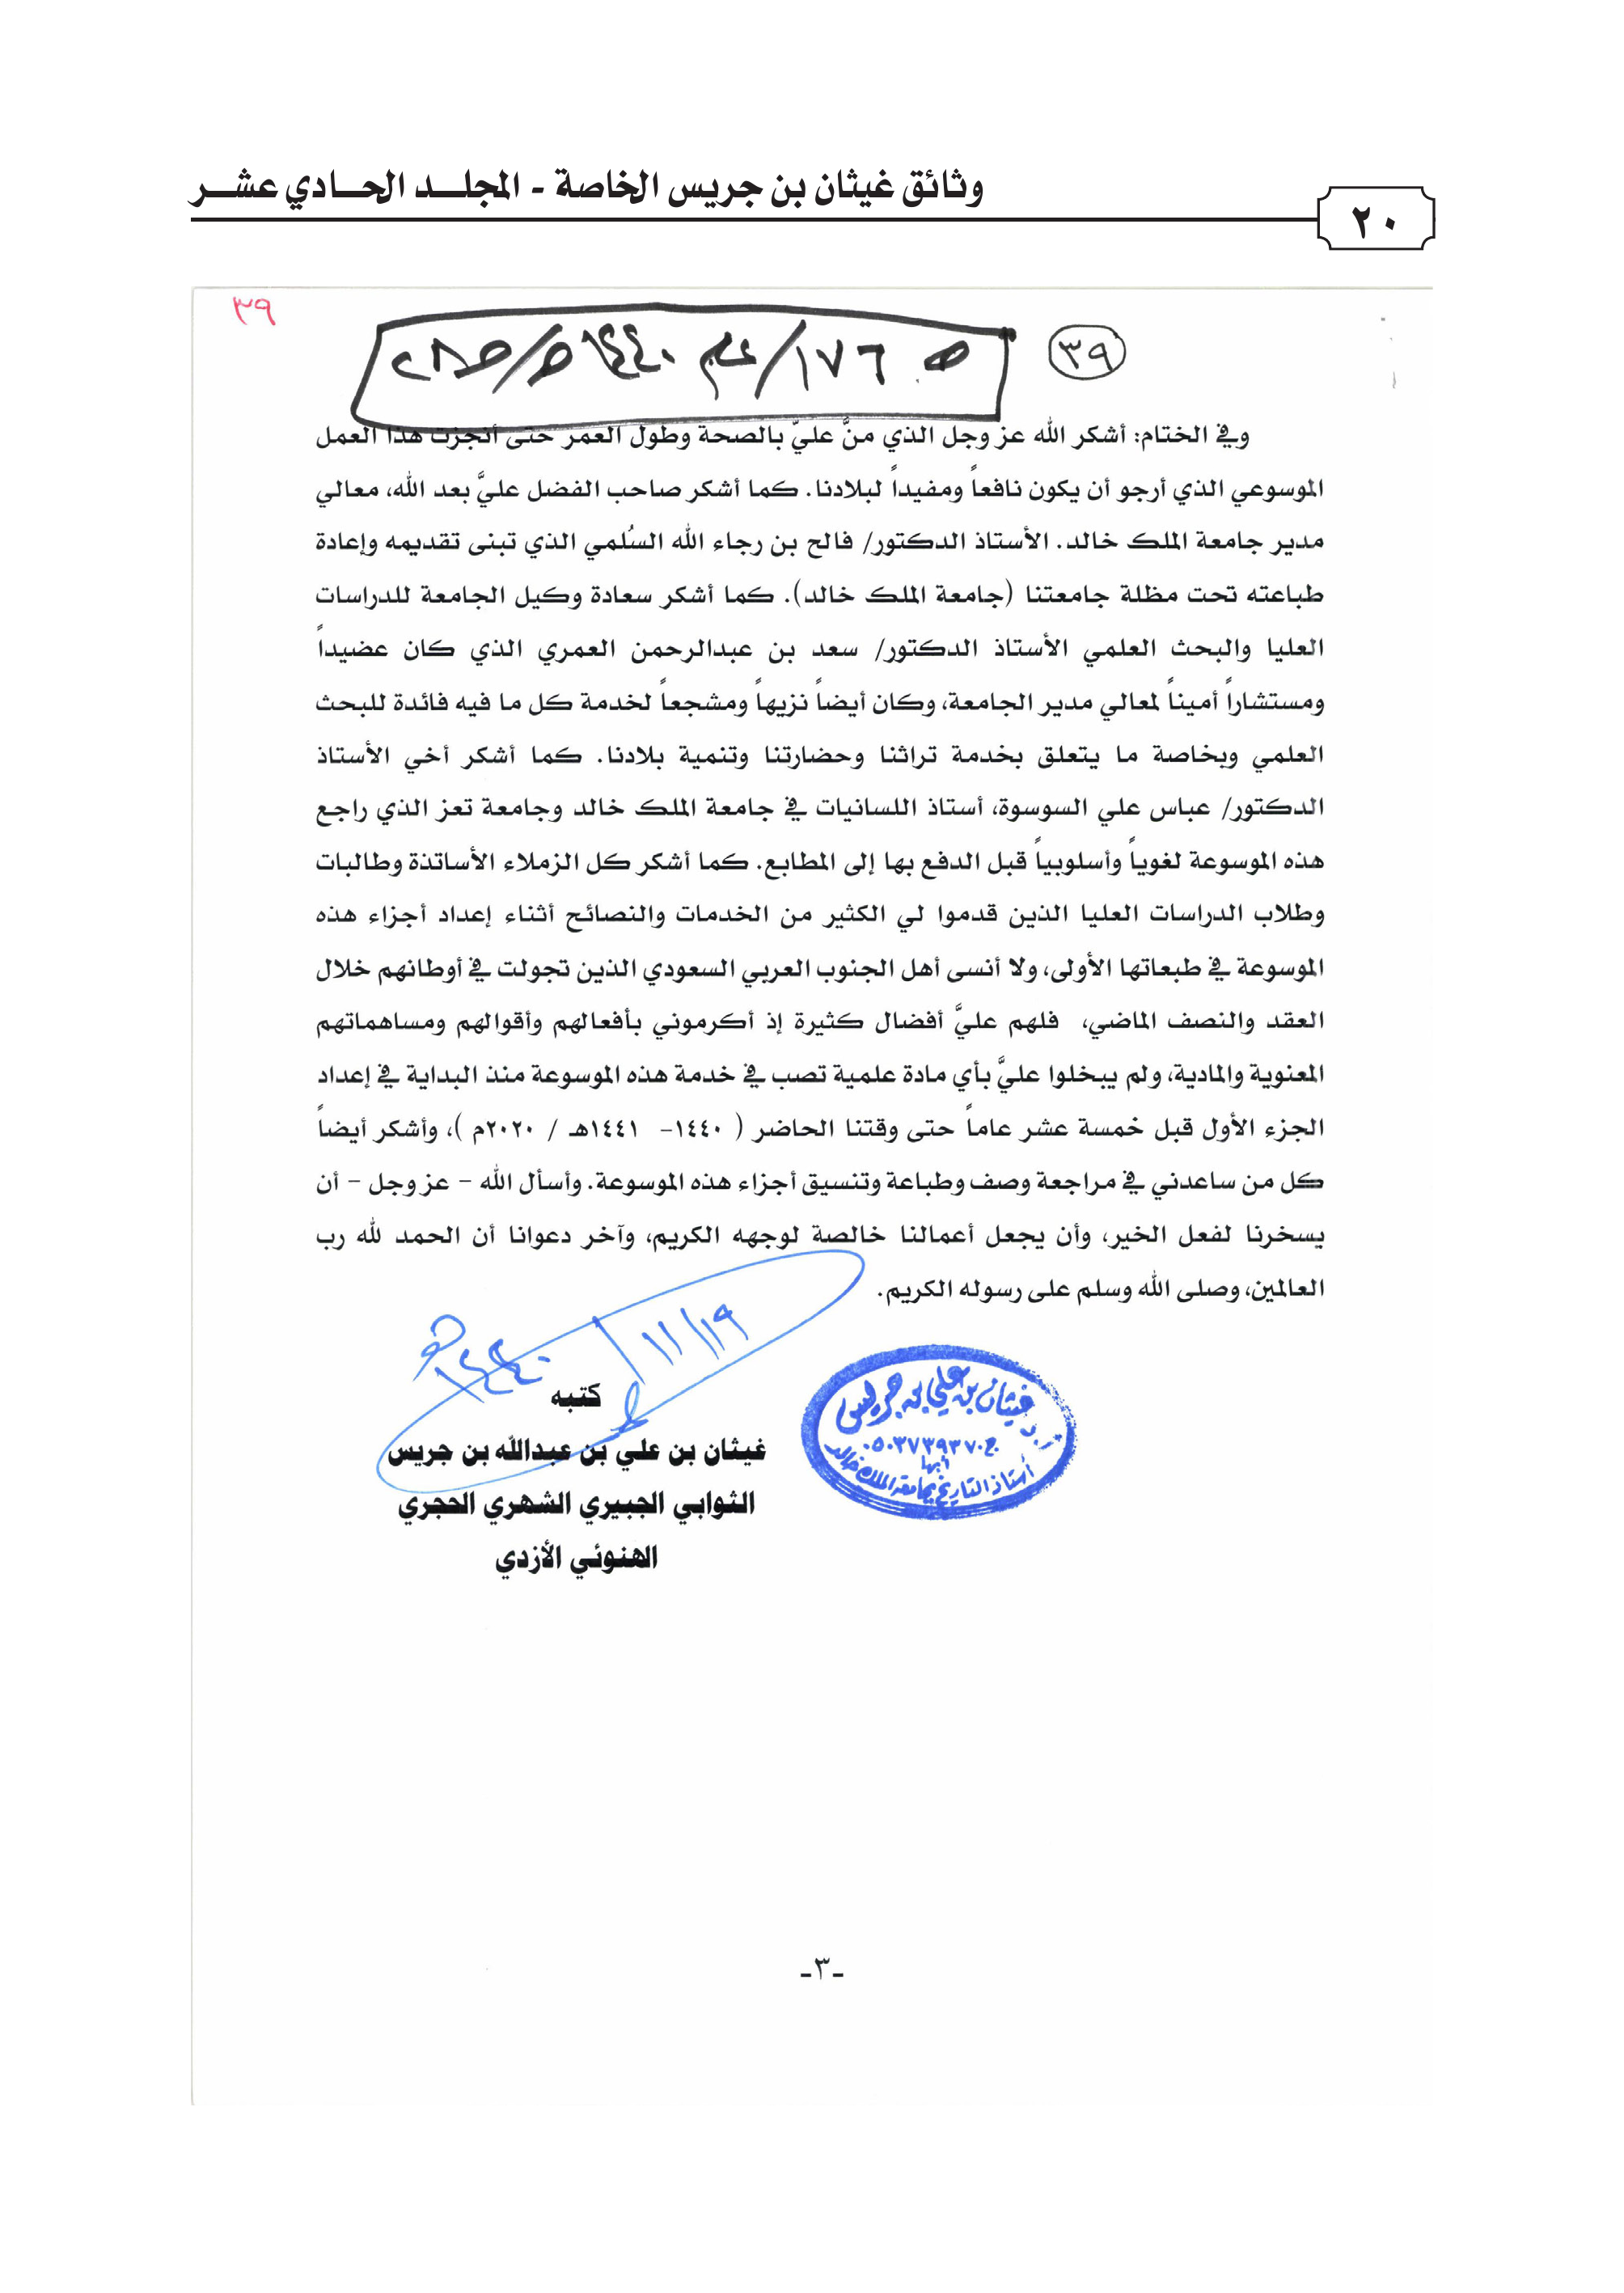 وثائق غيثان بن جريس الخاصة - المجلـــد الحـــادي عشـــر
٢٠
٣٩
٣٩
وفي الختام: أشكر الله عز وجل الذي منَّ عليّ بالصحة وطول العمر حتى أنجزت هذا العمل
الموسوعي الذي أرجو أن يكون نافعاً ومفيداً لبلادنا. كما أشكر صاحب الفضل عليَّ بعد الله، معالي
مدير جامعة الملك خالد. الأستاذ الدكتور/ فالح بن رجاء الله السُلمي الذي تبنى تقديمه وإعادة
طباعته تحت مظلة جامعتنا (جامعة الملك خالد). كما أشكر سعادة وكيل الجامعة للدراسات
العليا والبحث العلمي الأستاذ الدكتور/ سعد بن عبدالرحمن العمري الذي كان عضيداً
ومستشاراً أميناً لمعالي مدير الجامعة، وكان أيضاً نزيهاً ومشجعاً لخدمة كل ما فيه فائدة للبحث
العلمي وبخاصة ما يتعلق بخدمة تراثنا وحضارتنا وتنمية بلادنا. كما أشكر أخي الأستاذ
الدكتور/ عباس علي السوسوة، أستاذ اللسانيات في جامعة الملك خالد وجامعة تعز الذي راجع
هذه الموسوعة لغوياً وأسلوبياً قبل الدفع بها إلى المطابع. كما أشكر كل الزملاء الأساتذة وطالبات
وطلاب الدراسات العليا الذين قدموا لي الكثير من الخدمات والنصائح أثناء إعداد أجزاء هذه
الموسوعة في طبعاتها الأولى، ولا أنسى أهل الجنوب العربي السعودي الذين تجولت في أوطانهم خلال
العقد والنصف الماضي، فلهم عليَّ أفضال كثيرة إذ أكرموني بأفعالهم وأقوالهم ومساهماتهم
المعنوية والمادية، ولم يبخلوا عليَّ بأي مادة علمية تصب في خدمة هذه الموسوعة منذ البداية في إعداد
الجزء الأول قبل خمسة عشر عاماً حتى وقتنا الحاضر ( ١٤٤٠- ١٤٤١هـ / ٢٠٢٠م )، وأشكر أيضاً
كل من ساعدني في مراجعة وصف وطباعة وتنسيق أجزاء هذه الموسوعة. وأسأل الله - عز وجل - أن
يسخرنا لفعل الخير، وأن يجعل أعمالنا خالصة لوجهه الكريم، وآخر دعوانا أن الحمد لله رب
العالمين، وصلى الله وسلم على رسوله الكريم.
١٩/١١/١٤٤٠هـ
كتبه
غيثان بن علي بن عبدالله بن جريس
الثوابي الجبيري الشهري الحجري
الهنوئي الأزدي
أ.د غيثان بن علي بن جريس
ج٠٥٠٣٧٣٩٣٧٠
أبها
أستاذ التاريخ بجامعة الملك خالد
-٣-